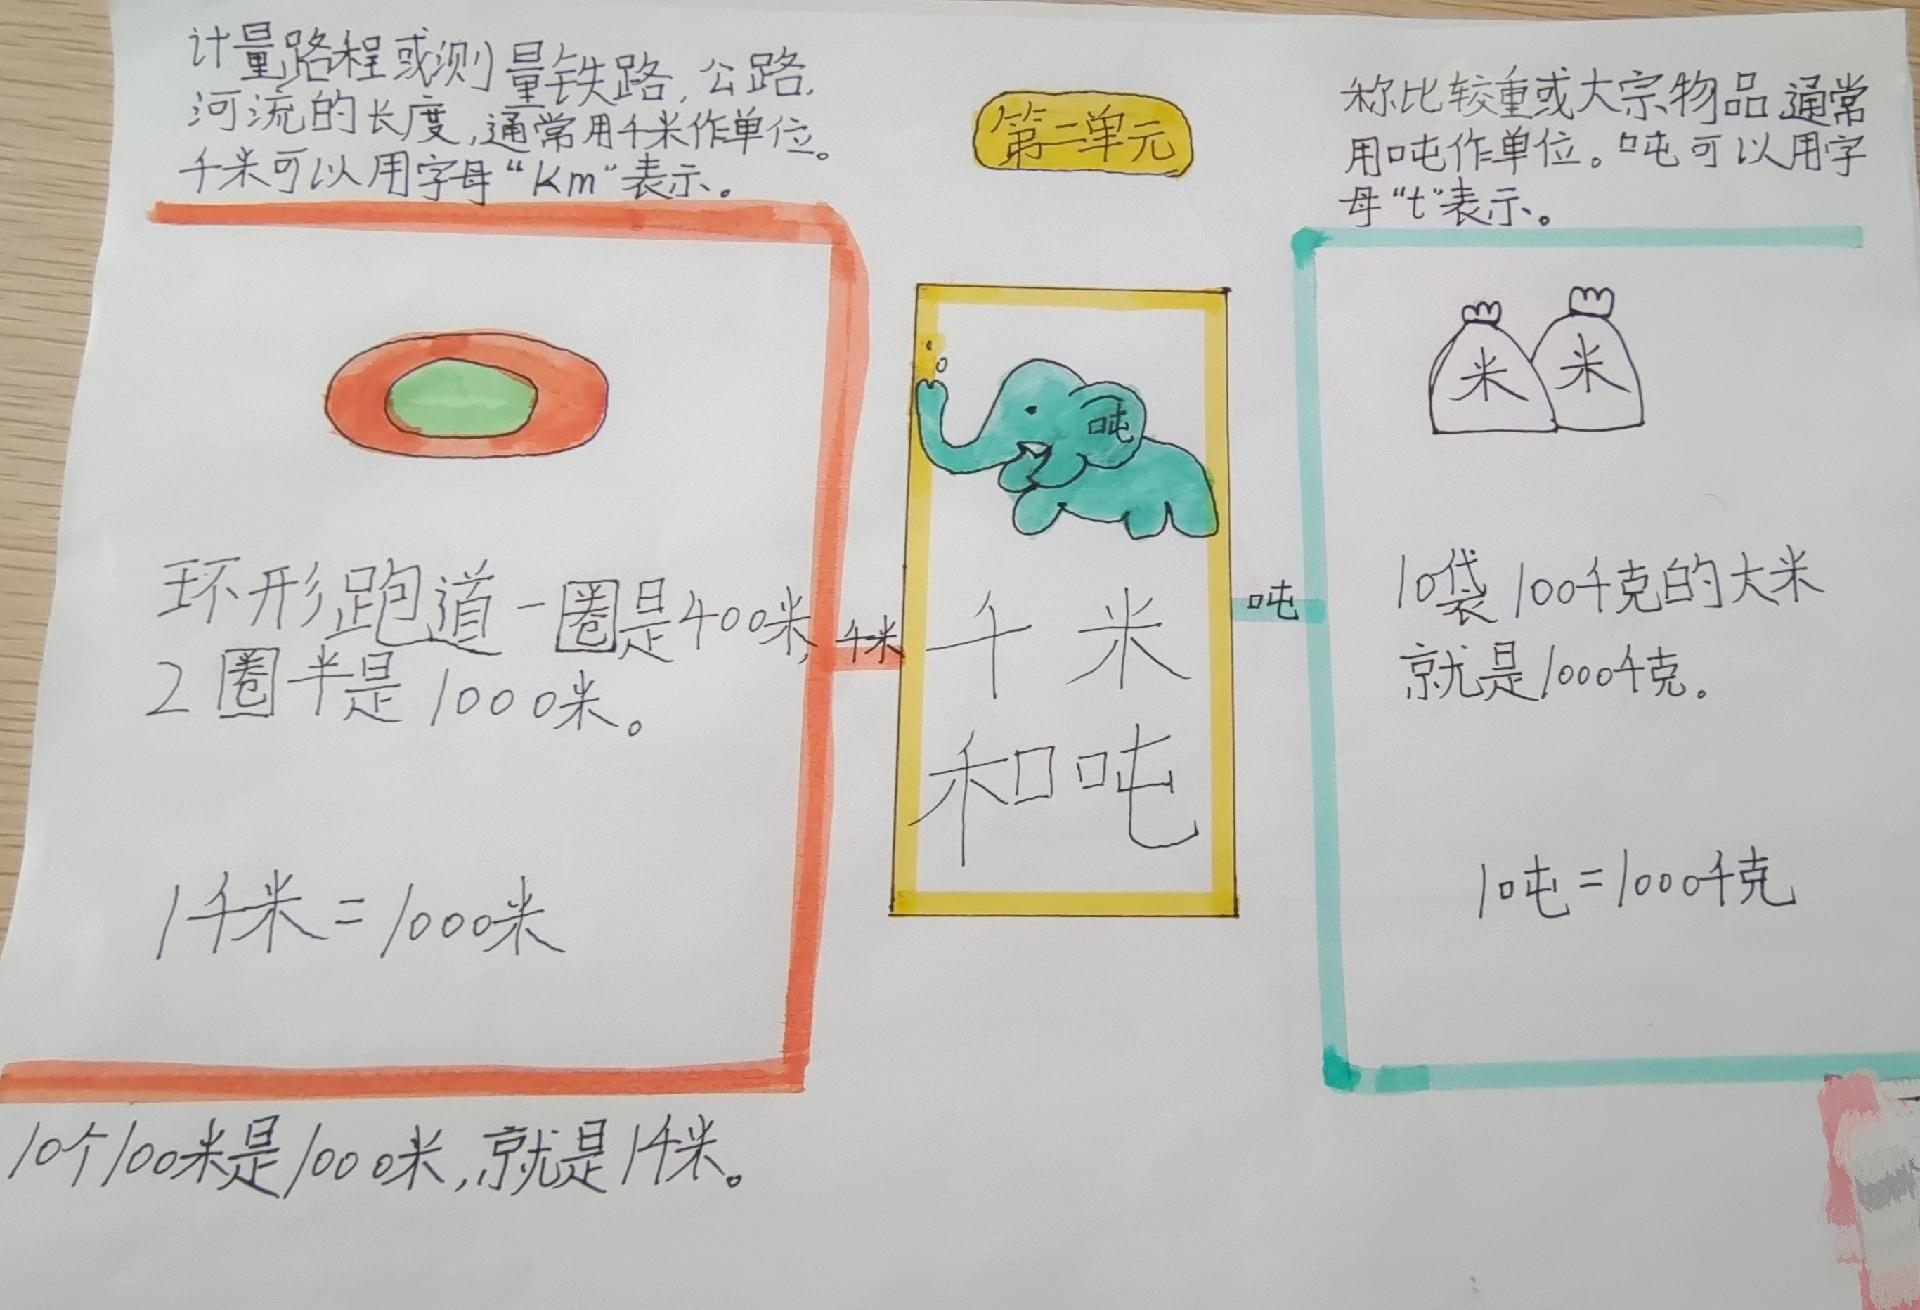 计量路程或测量铁路,公路,
河流的长度,通常用千米作单位。
千米可以用字母“Km”表示。
第二单元
称比较重或大宗物品,通常
用吨作单位。吨可以用字
母“t”表示。
吨
米
米
环形跑道一圈是400米,
2圈半是1000米。
千米
千米
和吨
吨
10袋100千克的大米
就是1000千克。
1千米=1000米
1吨=1000千克
10个100米是1000米,就是1千米。